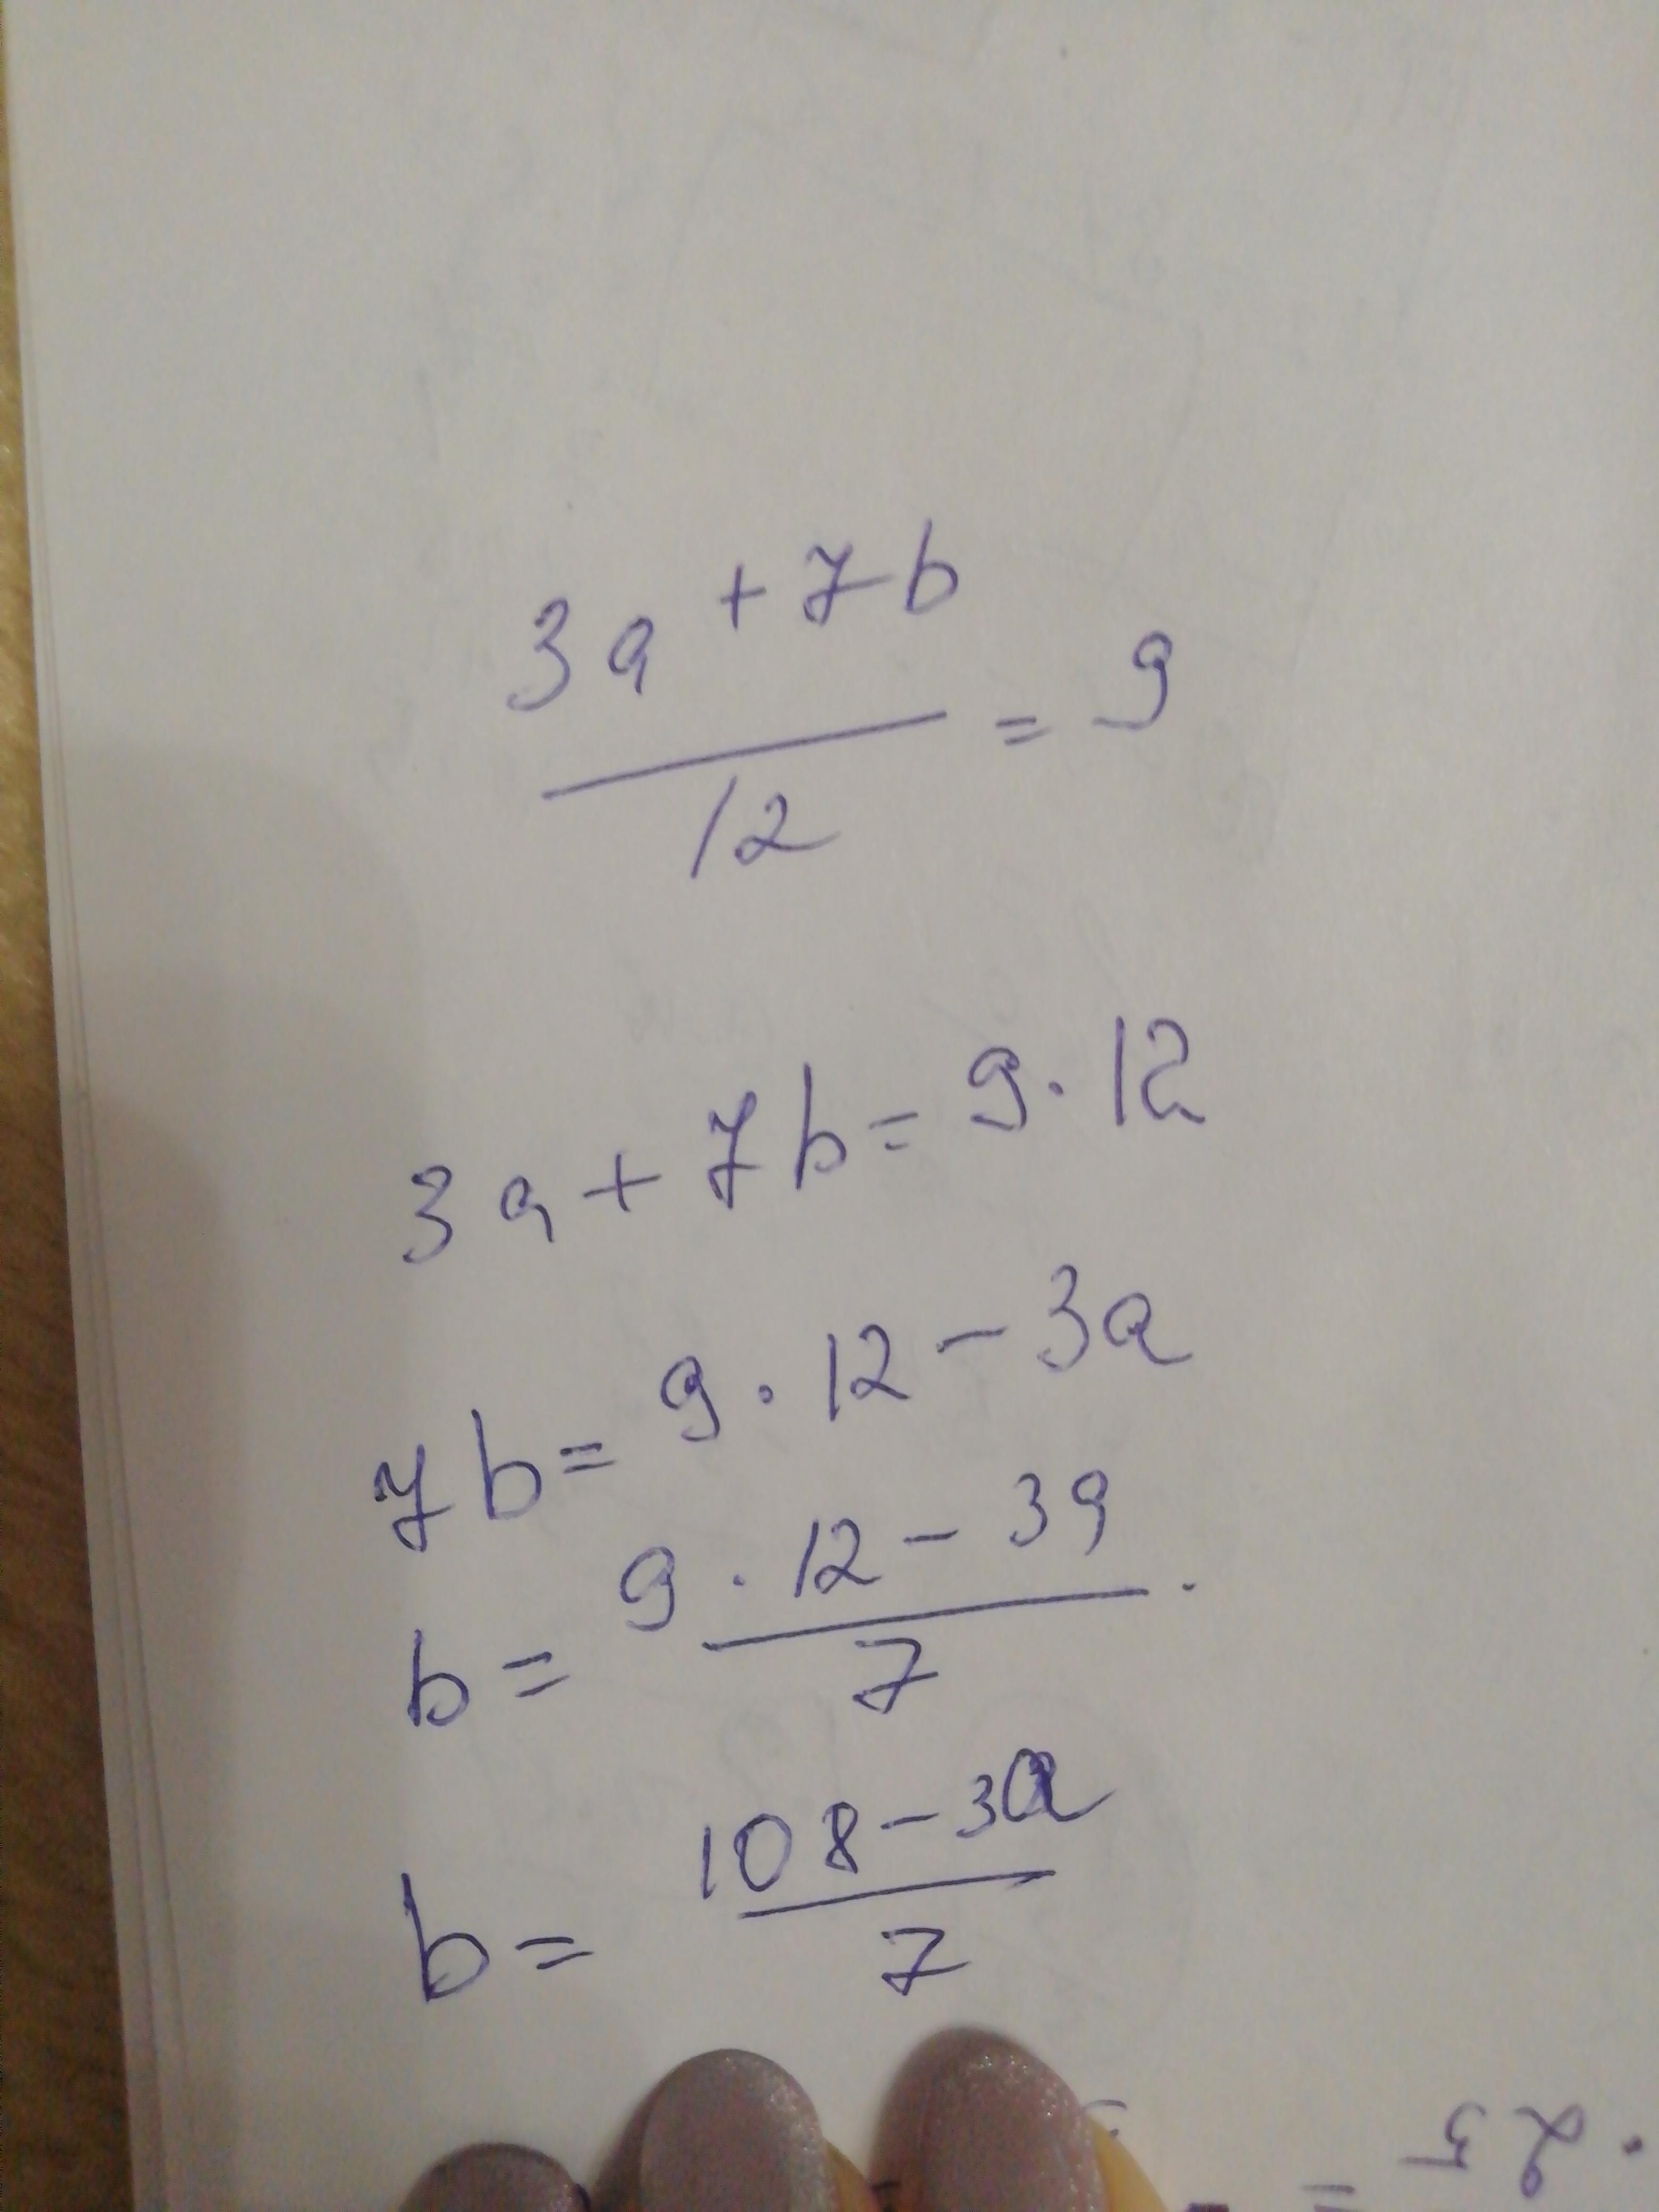 3a + 7b
— = 9
12
3a + 7b = 9 · 12
7b = 9 · 12 - 3a
b = 9 · 12 - 3a / 7 .
b = 108 - 3a / 7
· 25 =